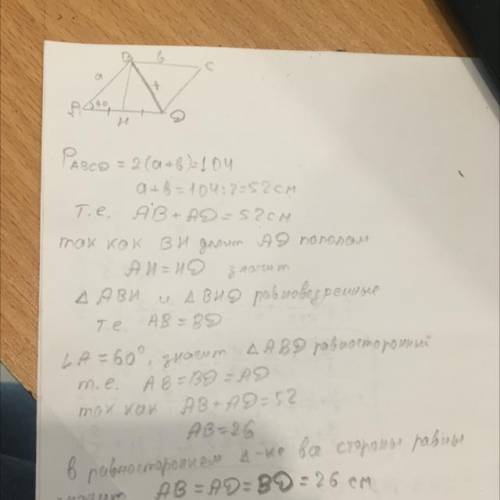 B b C
a
A 60° H D
P_ABCD = 2(a+b)=104
a+b=104:2=52см
т.е. AB + AD = 52см
так как BH делит AD пополам
AH = HD значит
△ ABH и △ BHD
т.е. AB = BD
∠A = 60°, значит △ ABD равносторонний
т.е. AB = BD = AD
так как AB + AD = 52
AB = 26
в равностороннем △-ке все стороны равны
значит AB = AD = BD = 26 см